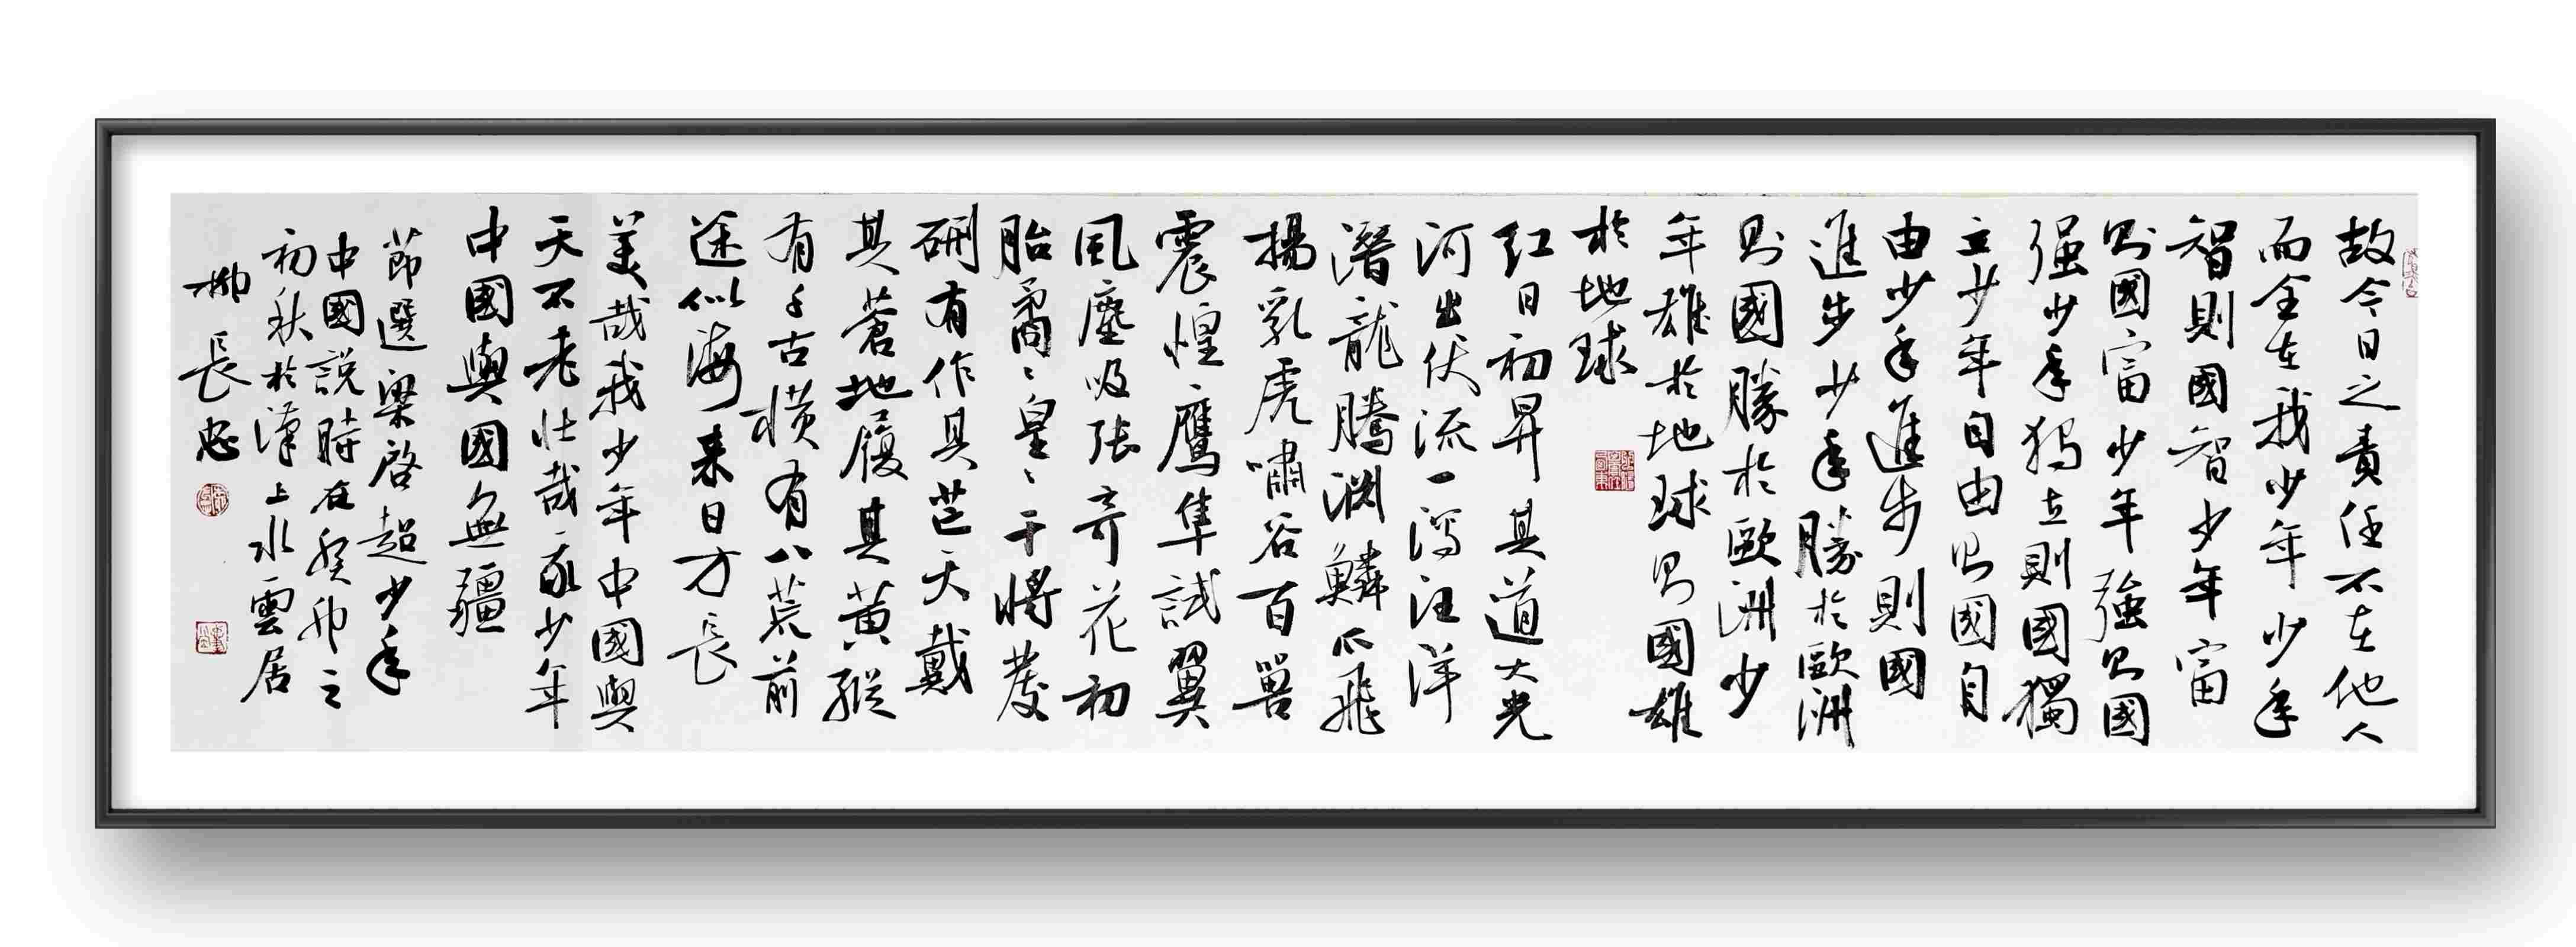 故今日之責任不在他人
而全在我少年少年
智則國智少年富
則國富少年強則國
强少年独立則國獨
立少年自由則國自
由少年進步則國
進步少年勝於歐洲
則國勝於歐洲少
年雄於地球則國雄
於地球
紅日初昇其道大光
河出伏流一瀉汪洋
潛龍騰淵鱗爪飛
揚乳虎嘯谷百獸
震惶鷹隼試翼
風塵吸張奇花初
胎矞矞皇皇干將發
硎有作其芒天戴
其蒼地履其黄縱
有千古横有八荒前
途似海来日方長
美哉我少年中國與
天不老壯哉我少年
中國與國無疆
節選梁启超少年
中國說時在癸卯之
初秋於漢上水雲居
柳長忠